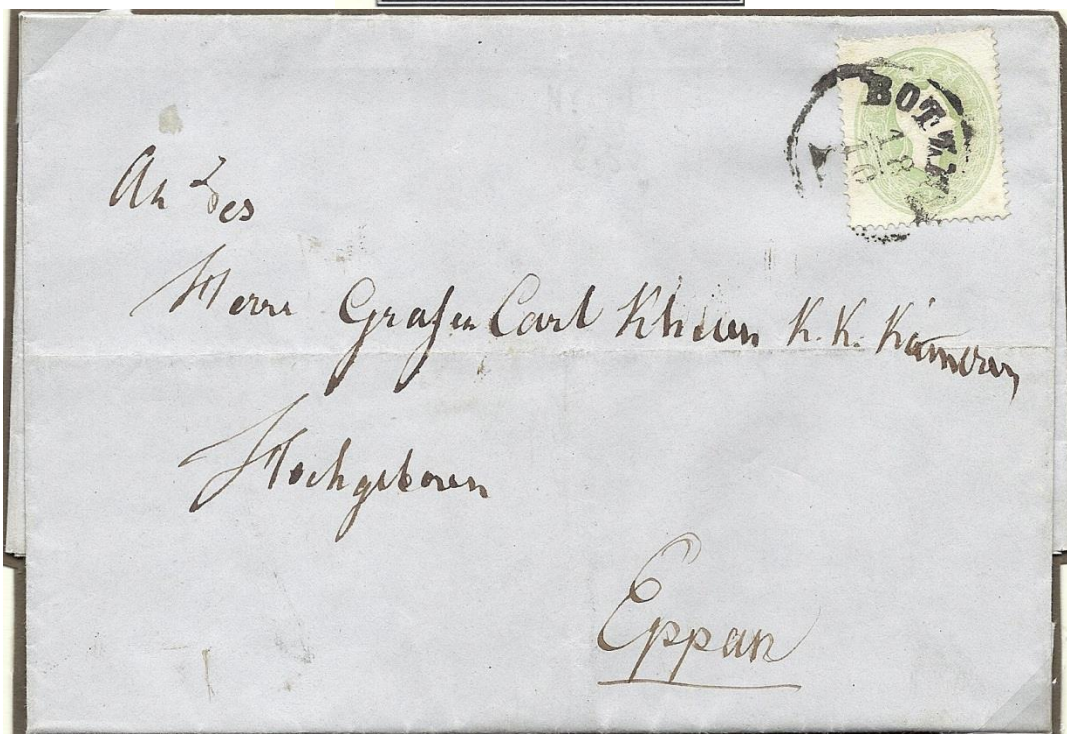 BOTZEN
18
10
An Des
Herrn Grafen Carl Khuen K. K. Kämerer
Hochgeboren
Eppan